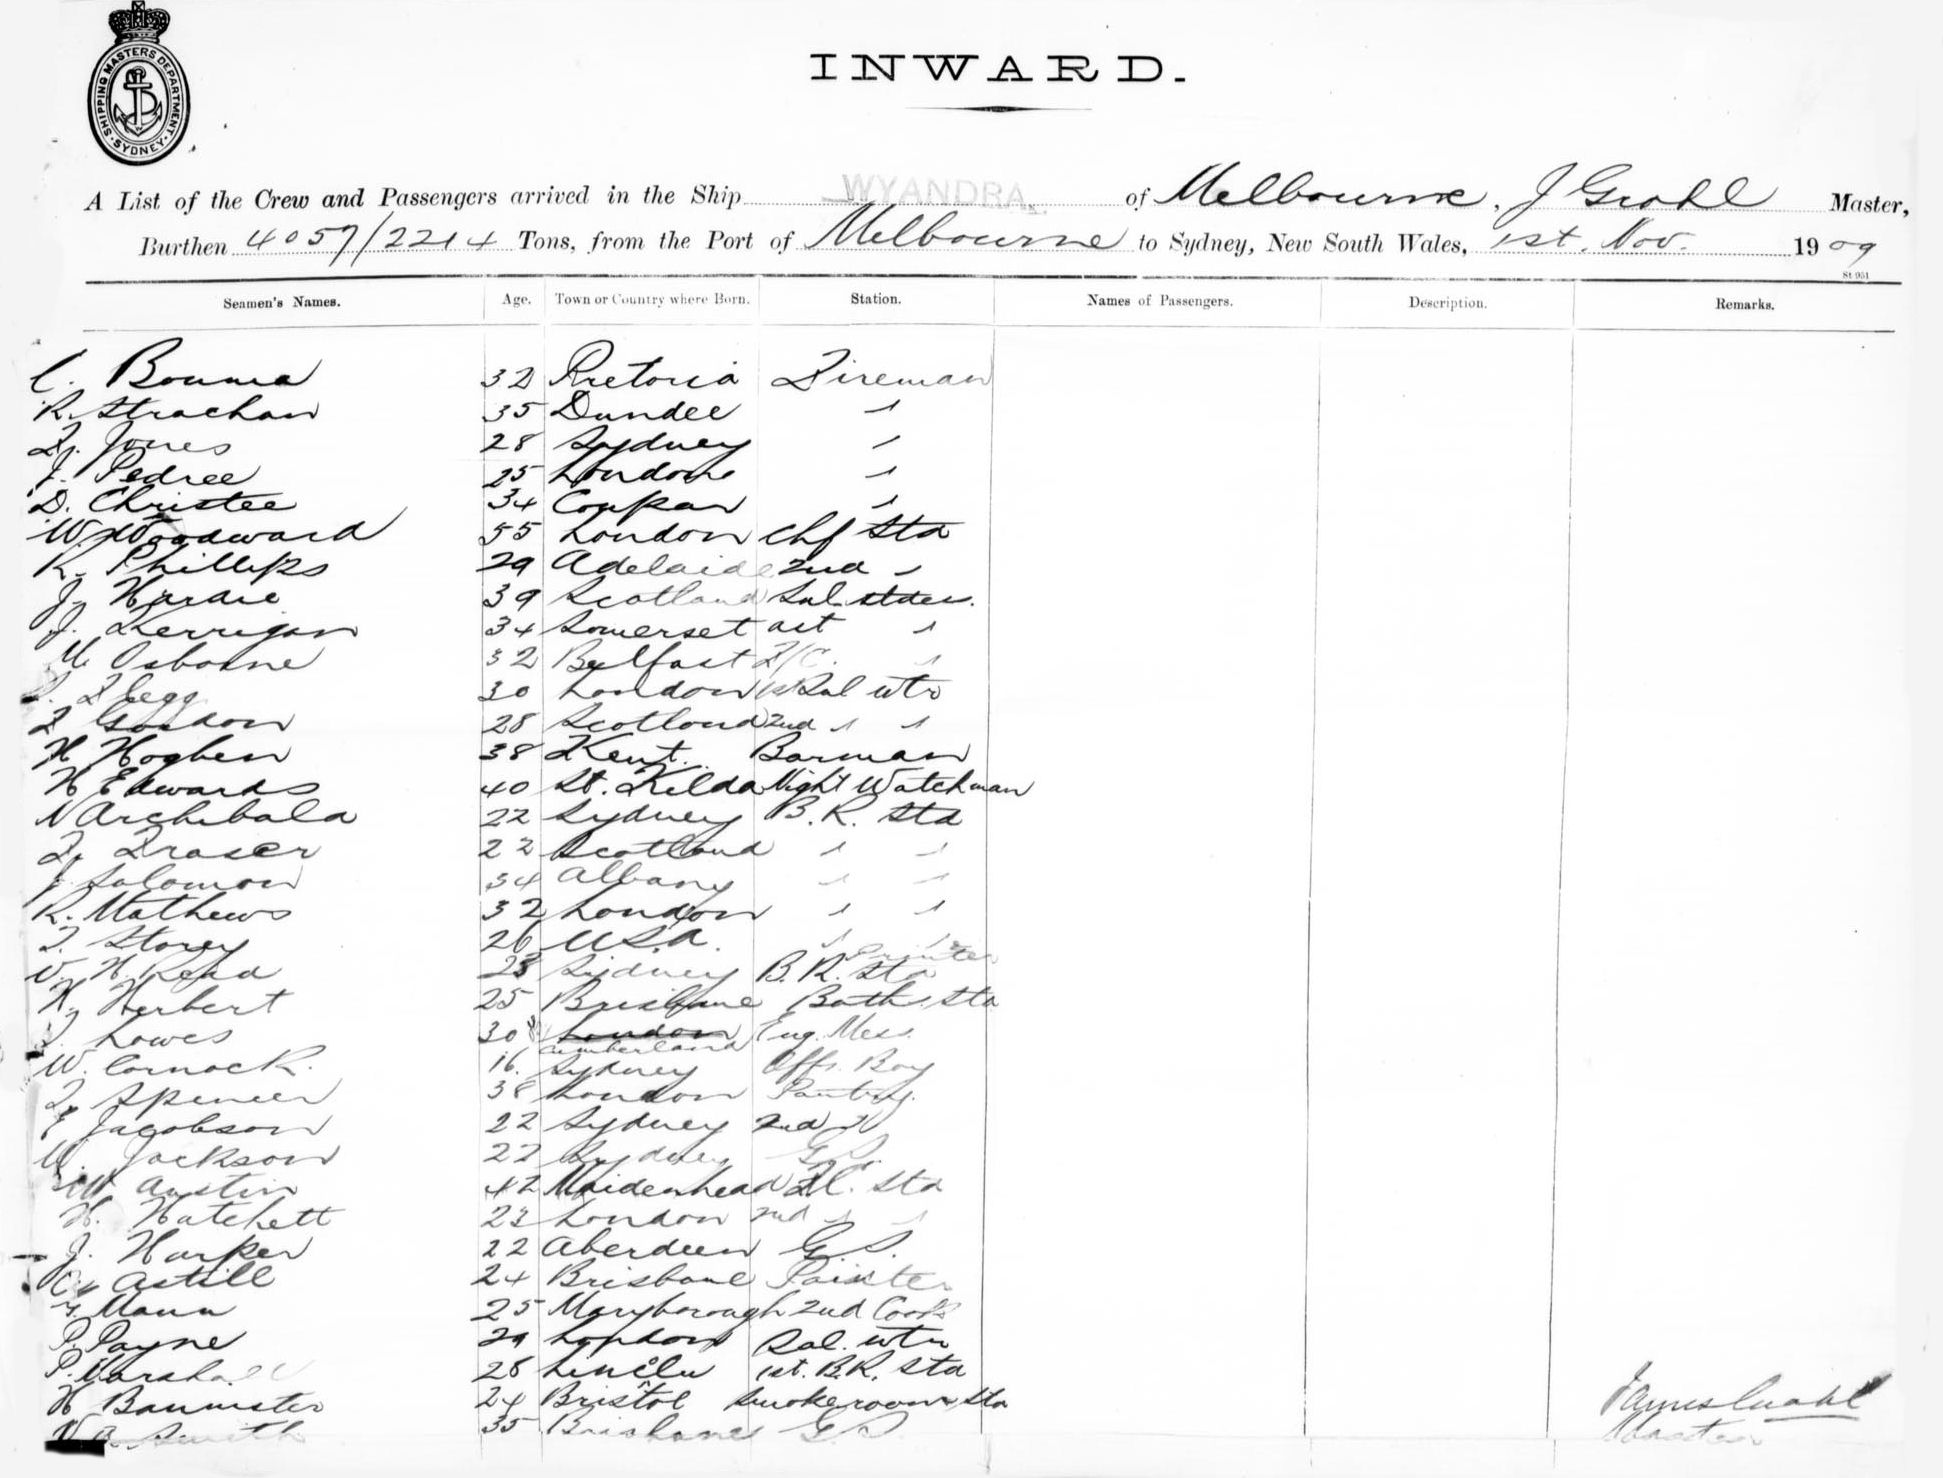 SHIPPING MASTERS DEPARTMENT
SYDNEY
INWARD.
A List of the Crew and Passengers arrived in the Ship WYANDRA. of Melbourne, J Grahl Master,
Burthen 4057/2214 Tons, from the Port of Melbourne to Sydney, New South Wales, 1st. Nov. 1909
St 951
Seamen's Names. Age. Town or Country where Born. Station. Names of Passengers. Description. Remarks.
C. Bouma 32 Pretoria Fireman
R. Strachan 35 Dundee "
F. Jones 28 Sydney "
J. Pedree 25 London "
D. Christee 34 "
W. Woodward 55 London Chf Std
R. Phillips 29 Adelaide 2nd "
J. Hardie 39 Scotland Sal.
J. Kerrigan 34 Somerset ast "
Osborne 32 Belfast F/C. "
Flegg 30 London 1st Sal wtr
F Gordon 28 Scotland 2nd " "
H Hogben 38 Kent. Barman
H Edwards 40 St. Kilda Night Watchman
N Archibald 22 Sydney B. R. Std
F. Fraser 22 Scotland " "
J Solomon 34 Albany " "
R. Mathews 32 London " "
F. Storey 26 U.S.A. " "
Printer
W. H. Read 23 Sydney B. R. Std
H. Herbert 25 Brisbane Bath. Std
Lowes 30 London Eng. Mess.
Cumberland
W. Cornock. 16. Sydney Offs. Boy
F. Spencer 38 London Pantry.
E Jacobson 22 Sydney 2nd "
W. Jackson 22 Sydney G.S.
W Austin 42 Maidenhead F.C. Std
H. Hatchett 23 London 2nd " "
J. Harper 22 Aberdeen G S.
Astill 24 Brisbane Painter
Mann 25 Maryborough 2nd Cook
P. Payne 29 London Sal. wtr
P. Marshall 28 1st. B.R. Std
H Bannister 24 Bristol Smokeroom Std
A. Smith 35 Brisbane G S
James Grahl
Master